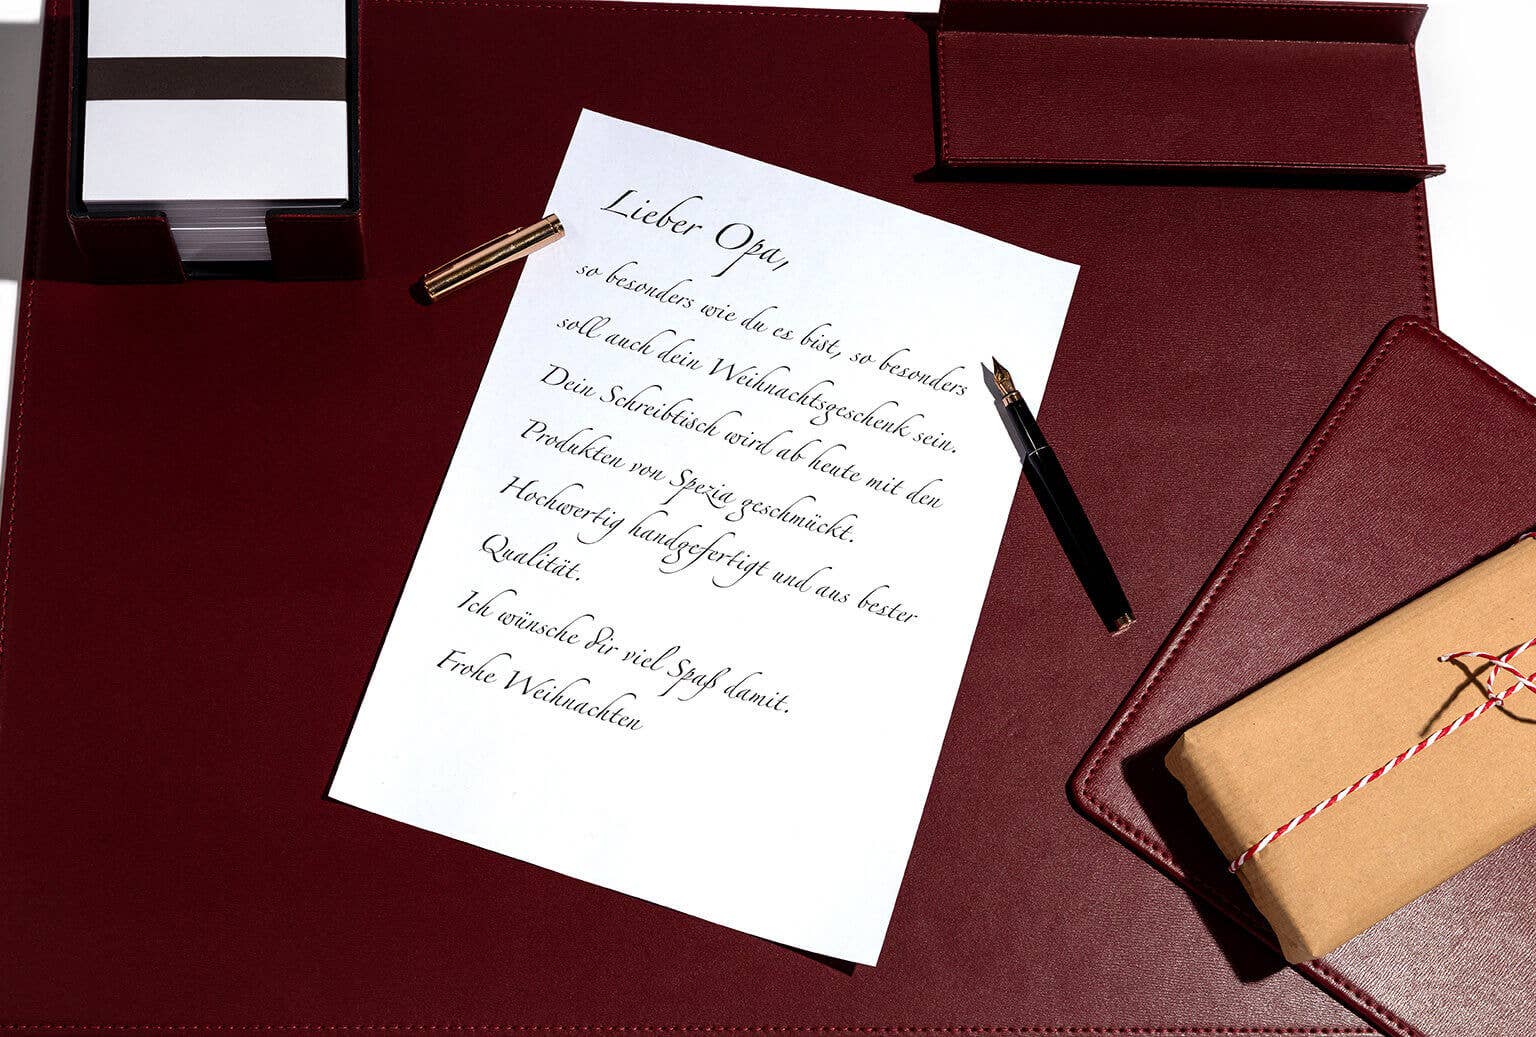 Lieber Opa,
so besonders wie du es bist, so besonders
soll auch dein Weihnachtsgeschenk sein.
Dein Schreibtisch wird ab heute mit den
Produkten von Spezia geschmückt.
Hochwertig handgefertigt und aus bester
Qualität.
Ich wünsche dir viel Spaß damit.
Frohe Weihnachten